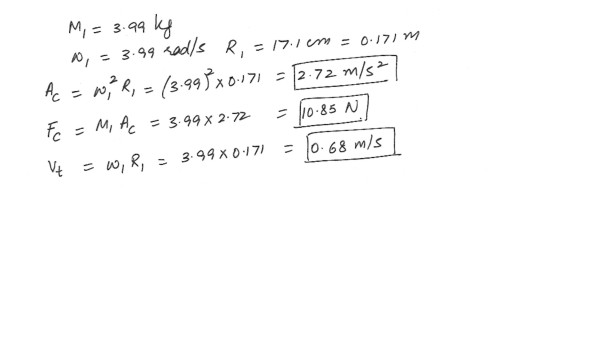 M₁ = 3.99 kg
ω₁ = 3.99 rad/s R₁ = 17.1 cm = 0.171 m
A_c = ω₁² R₁ = (3.99)² × 0.171 = 2.72 m/s²
F_c = M₁ A_c = 3.99 × 2.72 = 10.85 N
V_t = ω₁ R₁ = 3.99 × 0.171 = 0.68 m/s